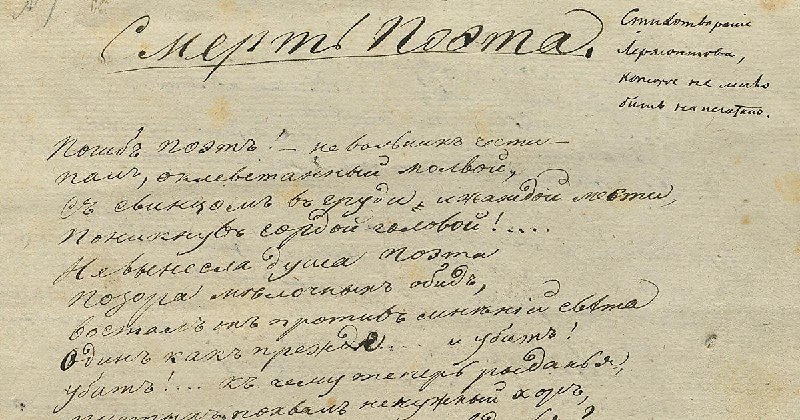 Смерть Поэта.
Стихотвореніе
Лермонтова,
которое не могло
быть напечатано.
Погибъ поэтъ! – невольникъ чести –
палъ, оклеветанный молвой,
Съ свинцомъ въ груди, и жаждой мести,
Поникнувъ гордой головой!....
Не вынесла душа Поэта
Позора мѣлочныхъ обидъ,
возсталъ онъ противъ мнѣній свѣта
Одинъ какъ прежде.... и убитъ!
убитъ!... къ чему теперь рыданья,
пустыхъ похвалъ ненужный хоръ,